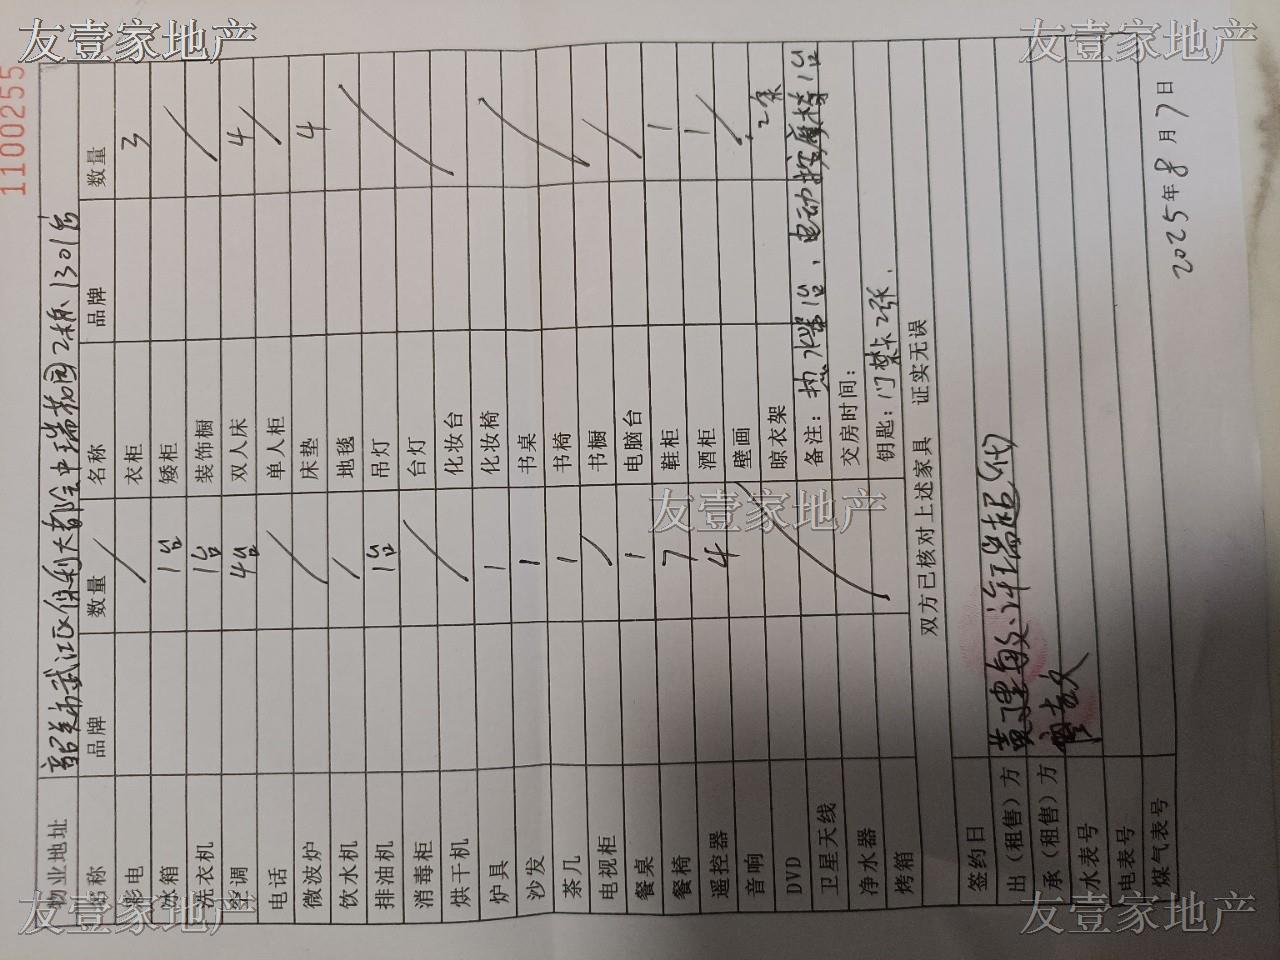 友壹家地产
友壹家地产
1100255
物业地址 韶关市武江区保利大都会中瑞花园2栋1301房
名称 品牌 数量 名称 品牌 数量
彩电 / 衣柜 3
冰箱 1台 矮柜 /
洗衣机 1台 装饰橱 /
空调 4台 双人床 4
电话 / 单人柜 /
微波炉 / 床垫 4
饮水机 / 地毯 /
排油机 1台 吊灯 /
消毒柜 / 台灯 /
烘干机 / 化妆台
炉具 1 化妆椅 /
沙发 1 书桌 /
茶几 1 书椅 /
电视柜 / 书橱 /
餐桌 1 电脑台 /
餐椅 7 鞋柜 1
遥控器 4 酒柜 1
音响 / 壁画 /
DVD / 晾衣架 2条
卫星天线 / 备注：热水器1台、电动按摩椅1台
净水器 / 交房时间：
烤箱 钥匙：门禁卡2张.
双方已核对上述家具 证实无误
签约日
出（租售）方 黄建毅、许瑞超(代)
承（租售）方
水表号
电表号
煤气表号
2025年8月7日
友壹家地产
友壹家地产
友壹家地产